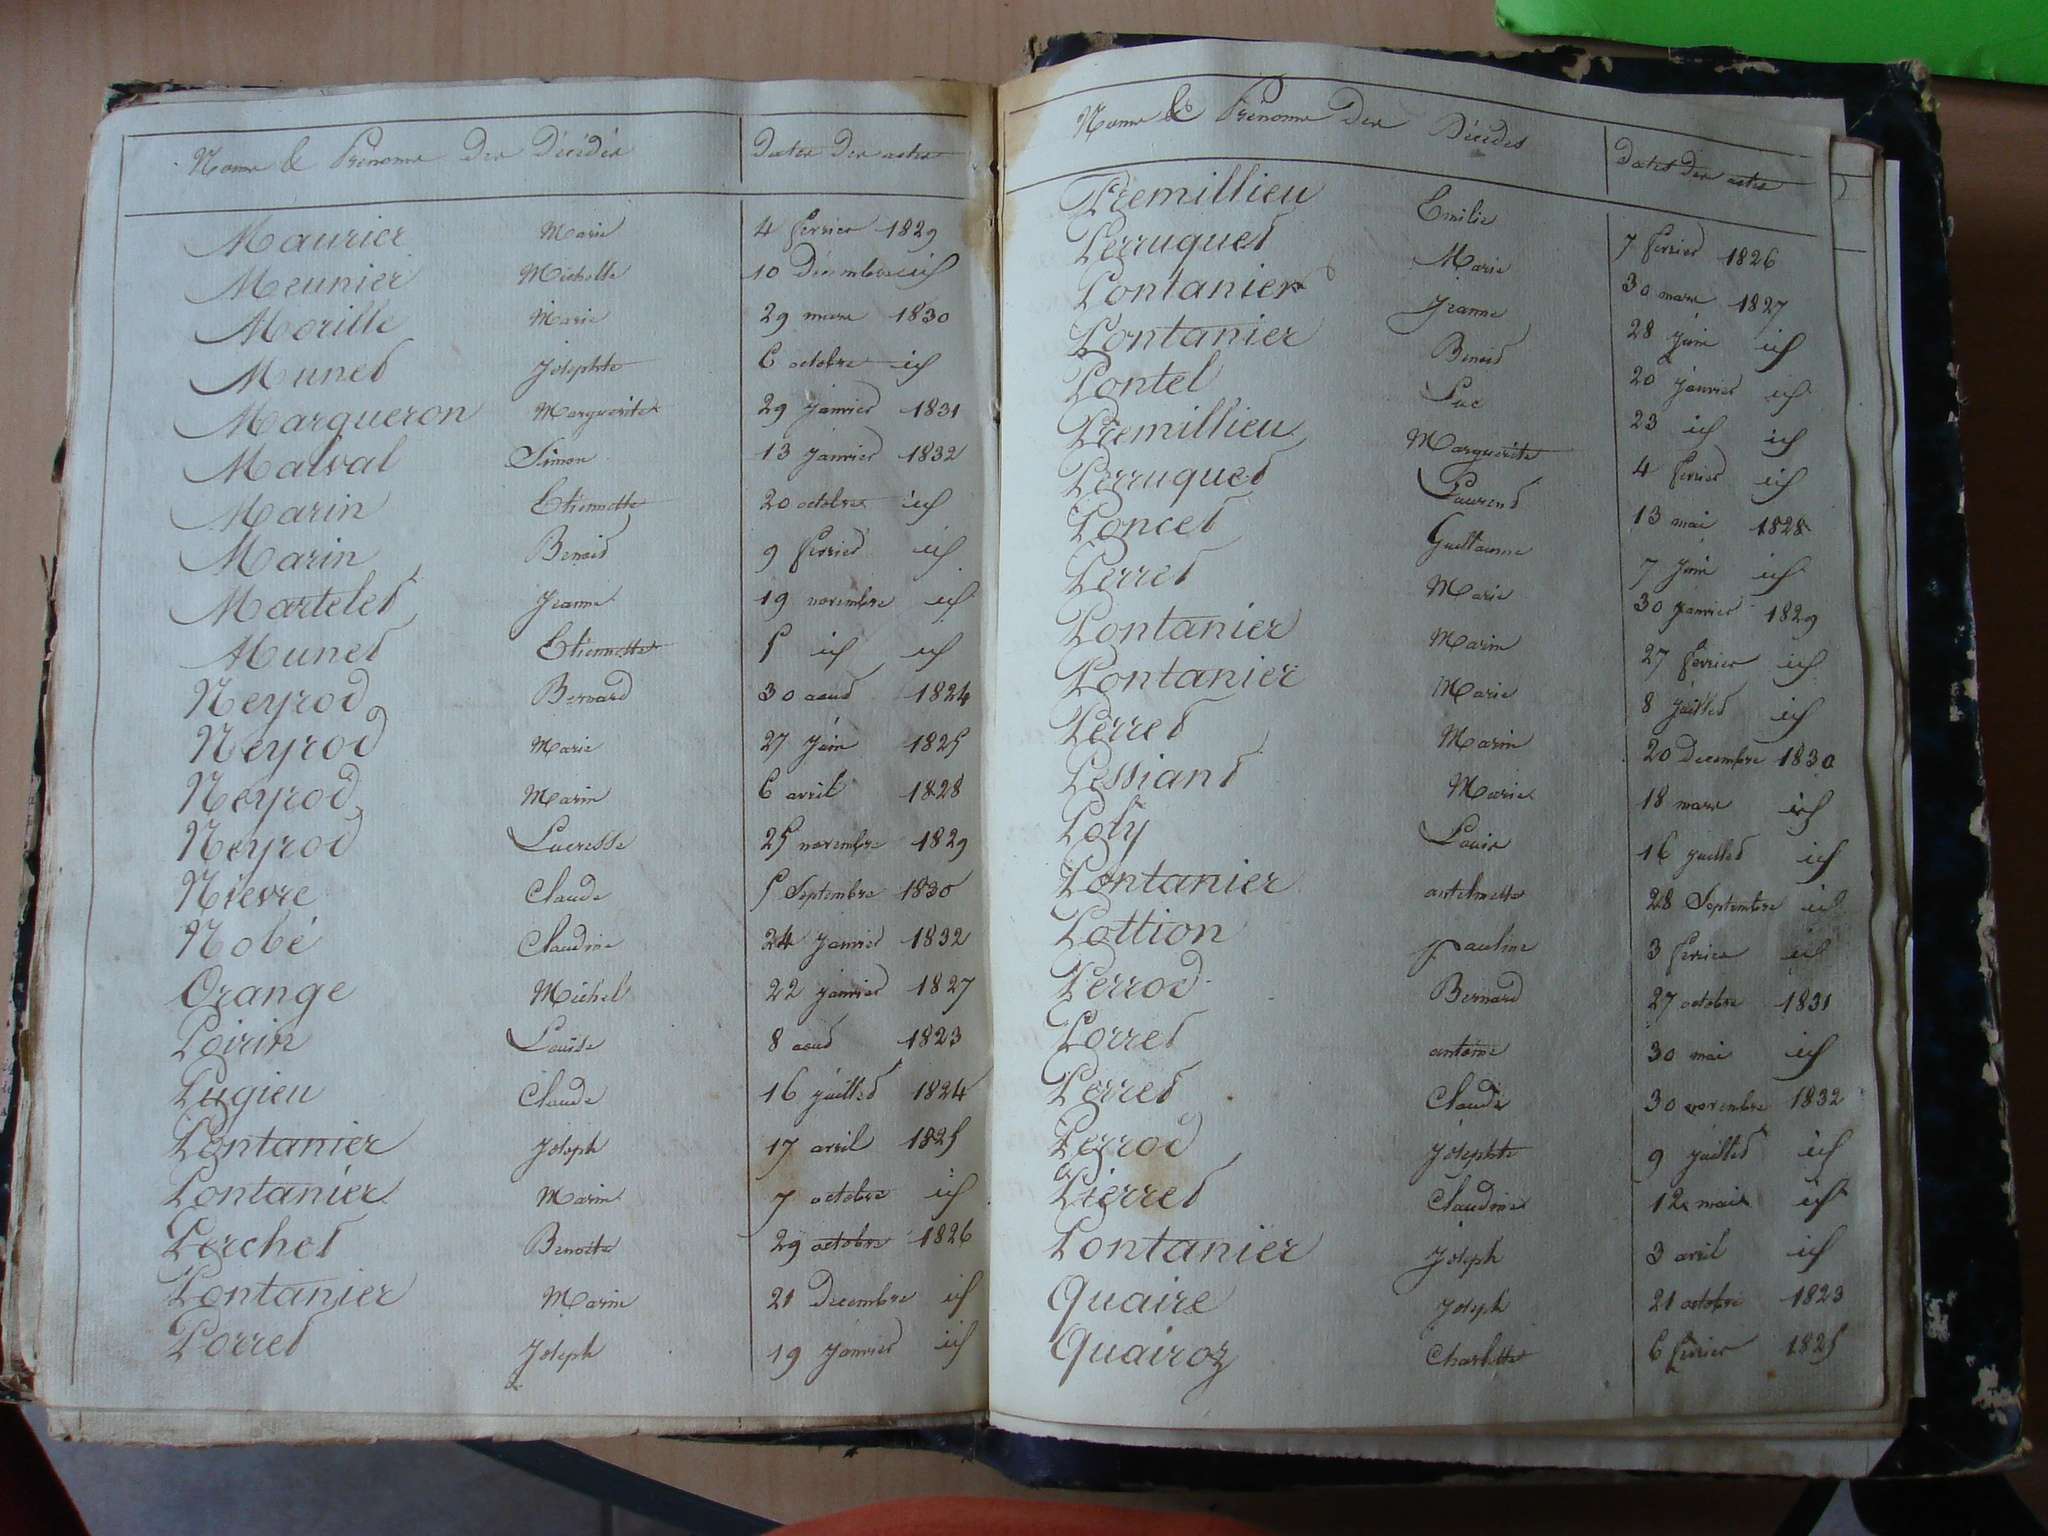 Noms & Prenoms Des Décédés Dates Des actes
Maurier Marie 4 fevrier 1829
Meunier Michelle 10 Décembre id
Morille Marie 29 mars 1830
Munet Josephte 6 octobre id
Margueron Marguerite 29 janvier 1831
Malval Simon 13 janvier 1832
Marin Etiennette 20 octobre id
Marin Benoit 9 fevrier id
Martelet Jeanne 19 novembre id
Munet Etiennette 5 id id
Neyrod Bernard 30 aout 1824
Neyrod Marie 27 juin 1825
Neyrod Marin 6 avril 1828
Neyrod Lucresse 25 novembre 1829
Nievre Claude 5 Septembre 1830
Nobé Claudine 24 janvier 1832
Orange Michel 22 janvier 1827
Poirin Louise 8 aout 1823
Pugieu Claude 16 juillet 1824
Pontanier Joseph 17 avril 1825
Pontanier Marin 7 octobre id
Perchet Benoite 29 octobre 1826
Pontanier Marin 21 Decembre id
Porret Joseph 19 janvier id
Noms & Prénoms Des Décédés Dates Des actes
Premillieu Emilie 7 fevrier 1826
Perruquet Marie 30 mars 1827
Pontanier Jeanne 28 juin id
Pontanier Benoit 20 janvier id
Pontel Luc 23 id id
Premillieu Marguerite 4 fevrier id
Perruquet Laurent 13 mai 1828
Poncet Guillaume 7 juin id
Perret Marie 30 janvier 1829
Pontanier Marin 27 fevrier id
Pontanier Marie 8 juillet id
Perret Marin 20 Decembre 1830
Pessiant Marie 18 mars id
Poly Louis 16 juillet id
Pontanier antelmette 28 Septembre id
Pottion pauline 3 fevrier id
Perrod Bernard 27 octobre 1831
Porret antoine 30 mai id
Perret Claude 30 novembre 1832
Perrod Josephte 9 juillet id
Pierret Claudine 12 mai id
Pontanier Joseph 3 avril id
Quaire Joseph 21 octobre 1823
Quairoz Charlotte 6 fevrier 1825